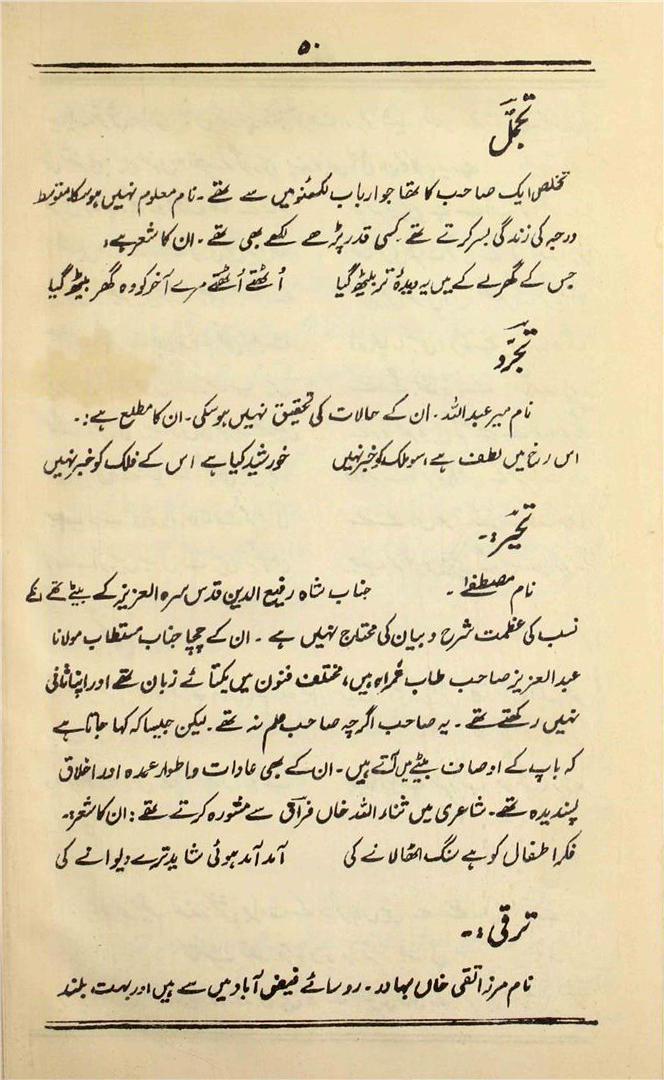 ۵۰
تجمّل
تخلص ایک صاحب کا تھا جو ارباب لکھنؤ میں سے تھے۔ نام معلوم نہیں ہو سکا متوسط
درجہ کی زندگی بسر کرتے تھے کسی قدر پڑھے لکھے بھی تھے۔ ان کا شعر ہے؛
جس کے گھر لے کے ہیں یہ دیدۂ تر بیٹھ گیا اُٹھتے اُٹھتے مرے آخر کو وہ گھر بیٹھ گیا
تجرّد
نام میر عبداللہ۔ ان کے حالات کی تحقیق نہیں ہو سکی۔ ان کا مطلع ہے:۔
اس رخ میں لطف ہے سو ملک کو خبر نہیں خورشید کیا ہے اس کے فلک کو خبر نہیں
تحیّر:۔
نام مصطفےٰ۔ جناب شاہ رفیع الدین قدس سرہ العزیز کے بیٹے تھے انکے
نسب کی عظمت شرح و بیان کی محتاج نہیں ہے۔ ان کے چچا جناب مستطاب مولانا
عبدالعزیز صاحب طاب ثراہ ہیں، مختلف فنون میں یکتائے زبان تھے اور اپنا ثانی
نہیں رکھتے تھے۔ یہ صاحب اگرچہ صاحب علم نہ تھے۔ لیکن جیسا کہ کہا جاتا ہے
کہ باپ کے اوصاف بیٹے میں آتے ہیں۔ ان کے بھی عادات و اطوار عمدہ اور اخلاق
پسندیدہ تھے۔ شاعری میں ثناء اللہ خاں فراق سے مشورہ کرتے تھے: ان کا شعر:۔
فکر اطفال کو ہے سنگ اٹھا لانے کی آمد آمد ہوئی شاید ترے دیوانے کی
ترقی:۔
نام مرزا تقی خاں بہادر۔ روسائے فیض آباد میں سے ہیں اور بہت بلند